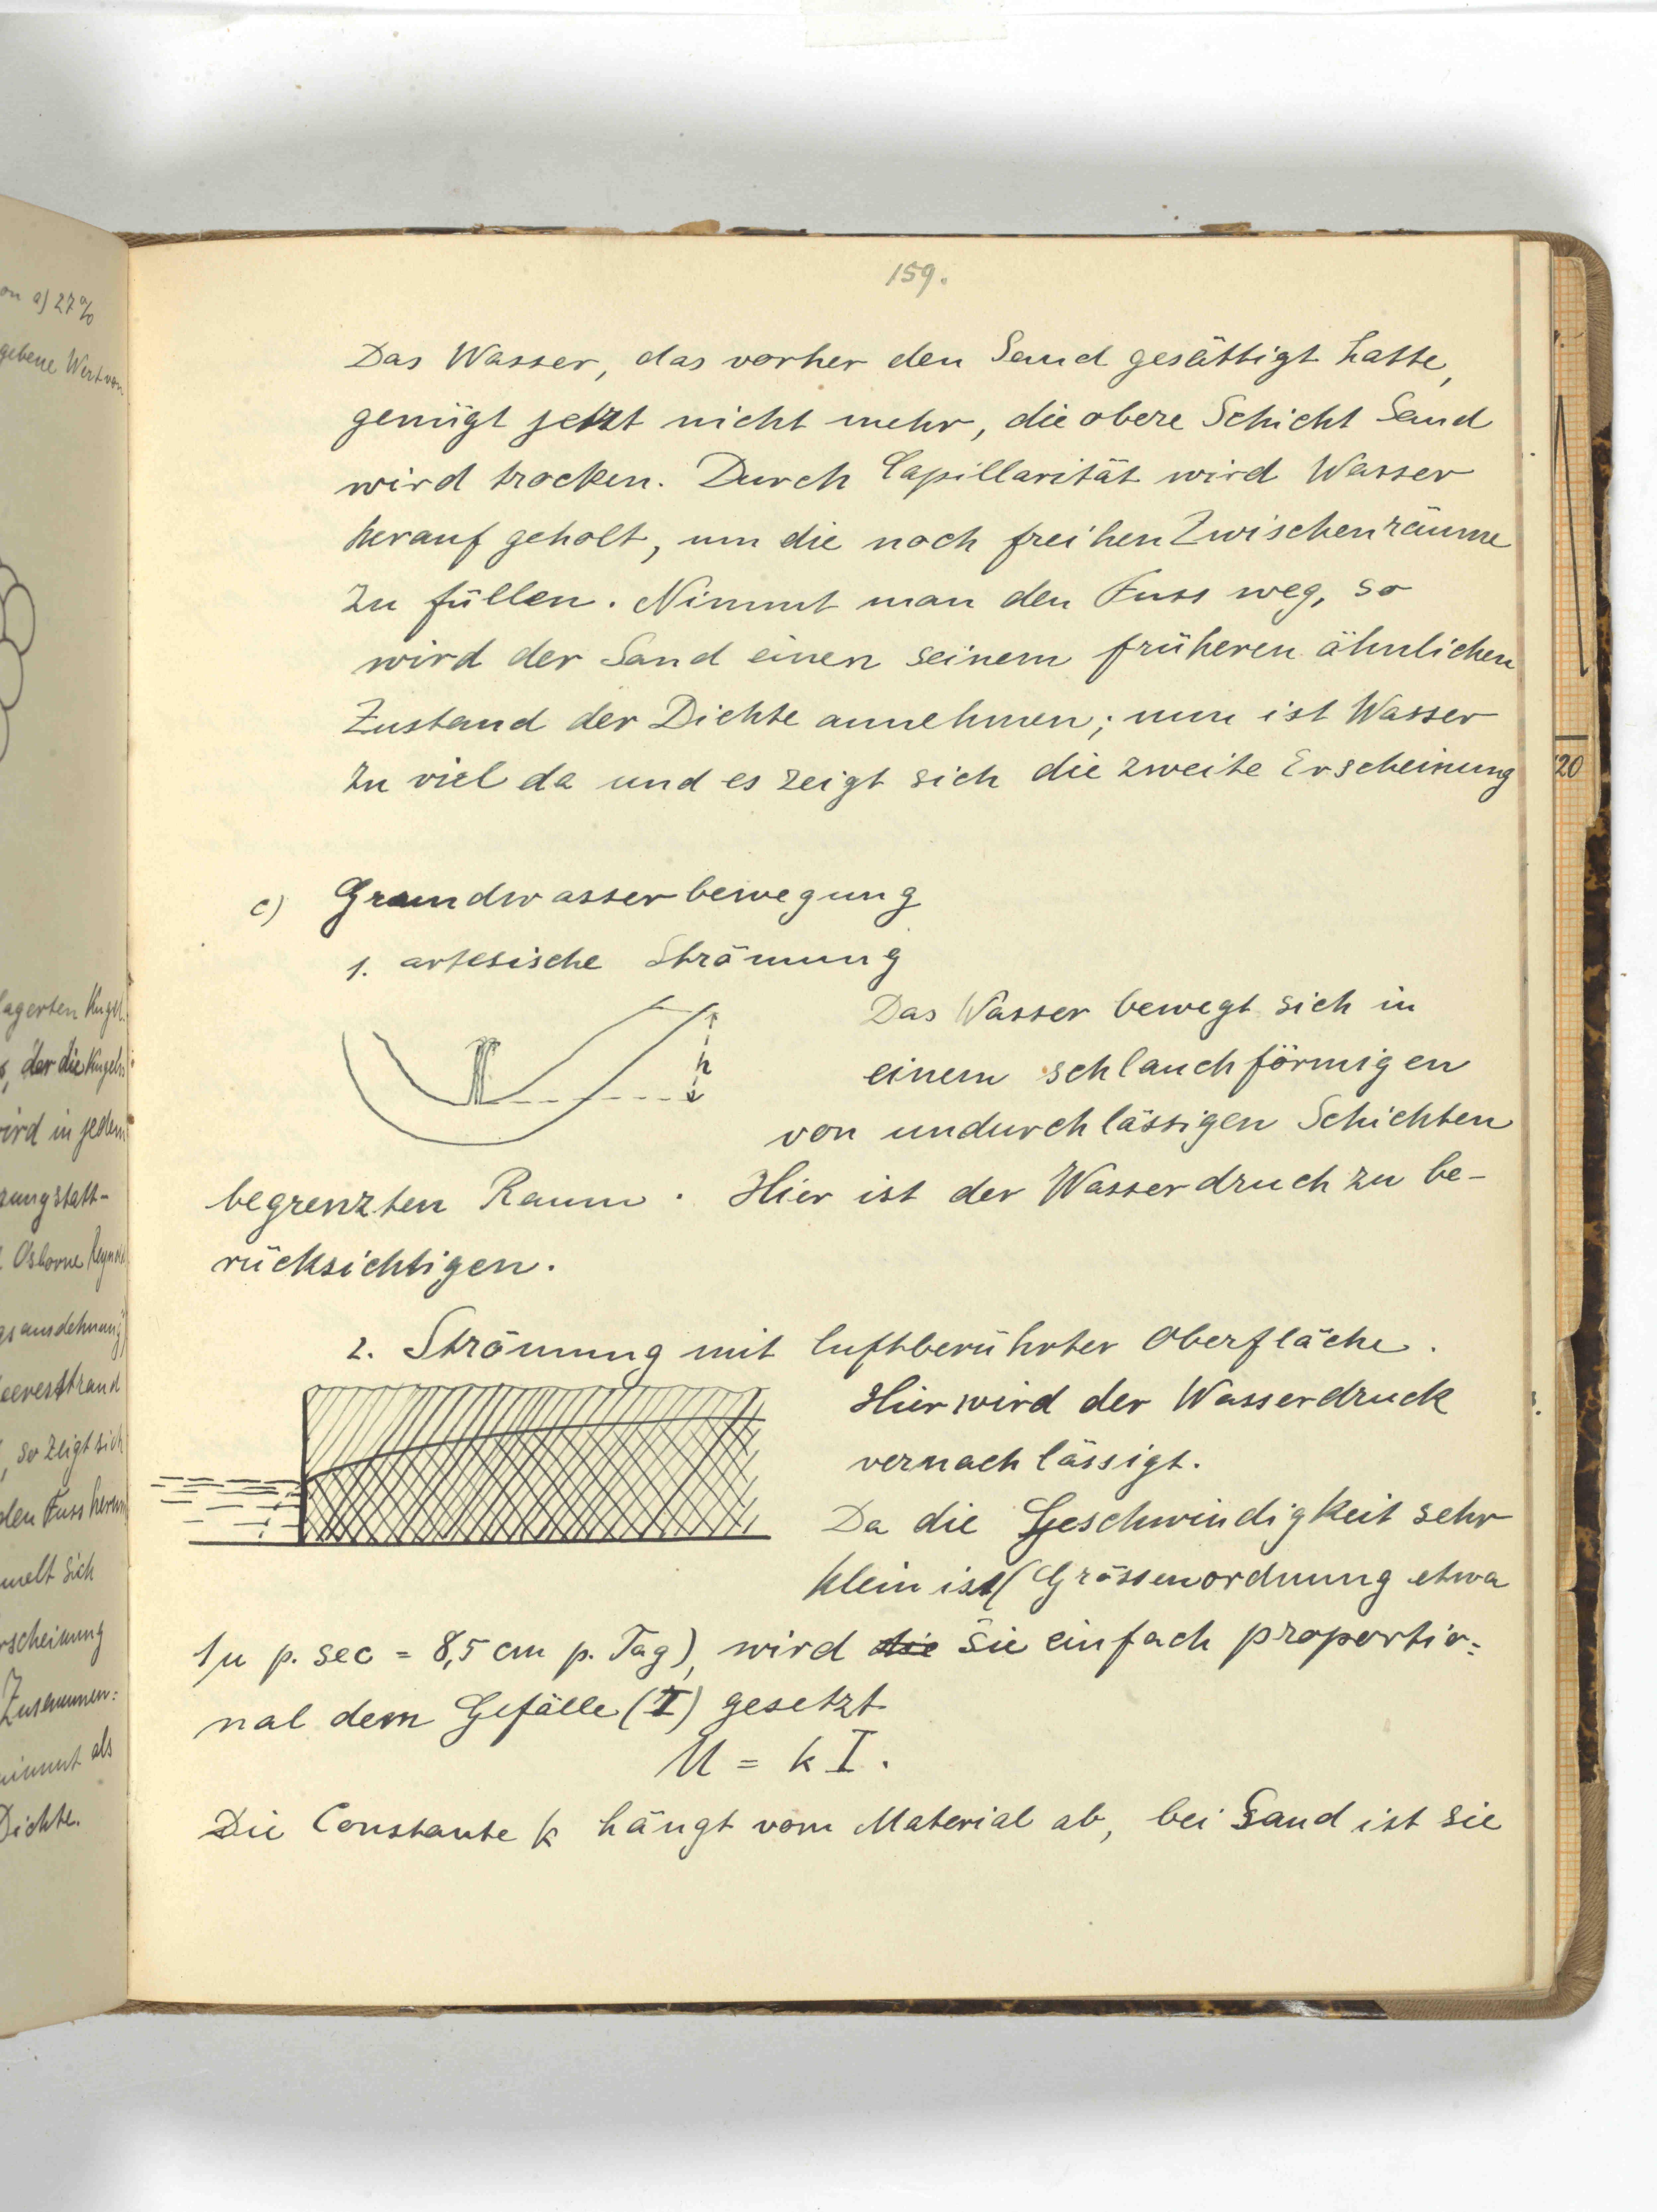 159.
Das Wasser, das vorher den Sand gesättigt hatte,
genügt jetzt nicht mehr, die obere Schicht Sand
wird trocken. Durch Capillarität wird Wasser
herauf geholt, um die noch freihen Zwischenräume
zu füllen. Nimmt man den Fuss weg, so
wird der Sand einen seinem früheren ähnlichen
Zustand der Dichte annehmen; nun ist Wasser
zu viel da und es zeigt sich die zweite Erscheinung
c) Grundwasserbewegung
1. artesische Strömung
h
Das Wasser bewegt sich in
einem schlauchförmigen
von undurchlässigen Schichten
begrenzten Raum. Hier ist der Wasserdruck zu be-
rücksichtigen.
2. Strömung mit luftberührter Oberfläche.
Hier wird der Wasserdruck
vernachlässigt.
Da die Geschwindigkeit sehr
klein ist (Grössenordnung etwa
1μ p. sec = 8,5 cm p. Tag), wird die sie einfach proportio=
nal dem Gefälle (I) gesetzt
U = k I.
Die Constante k hängt vom Material ab, bei Sand ist sie
on a) 27%
gebene Wert von
lagerten Kugel
der die Kugeln
wird in jedem
Osborne
so zeigt sich
den Fuss
melt sich
rscheinung
Zusammen:
nimmt als
Dichte.
20